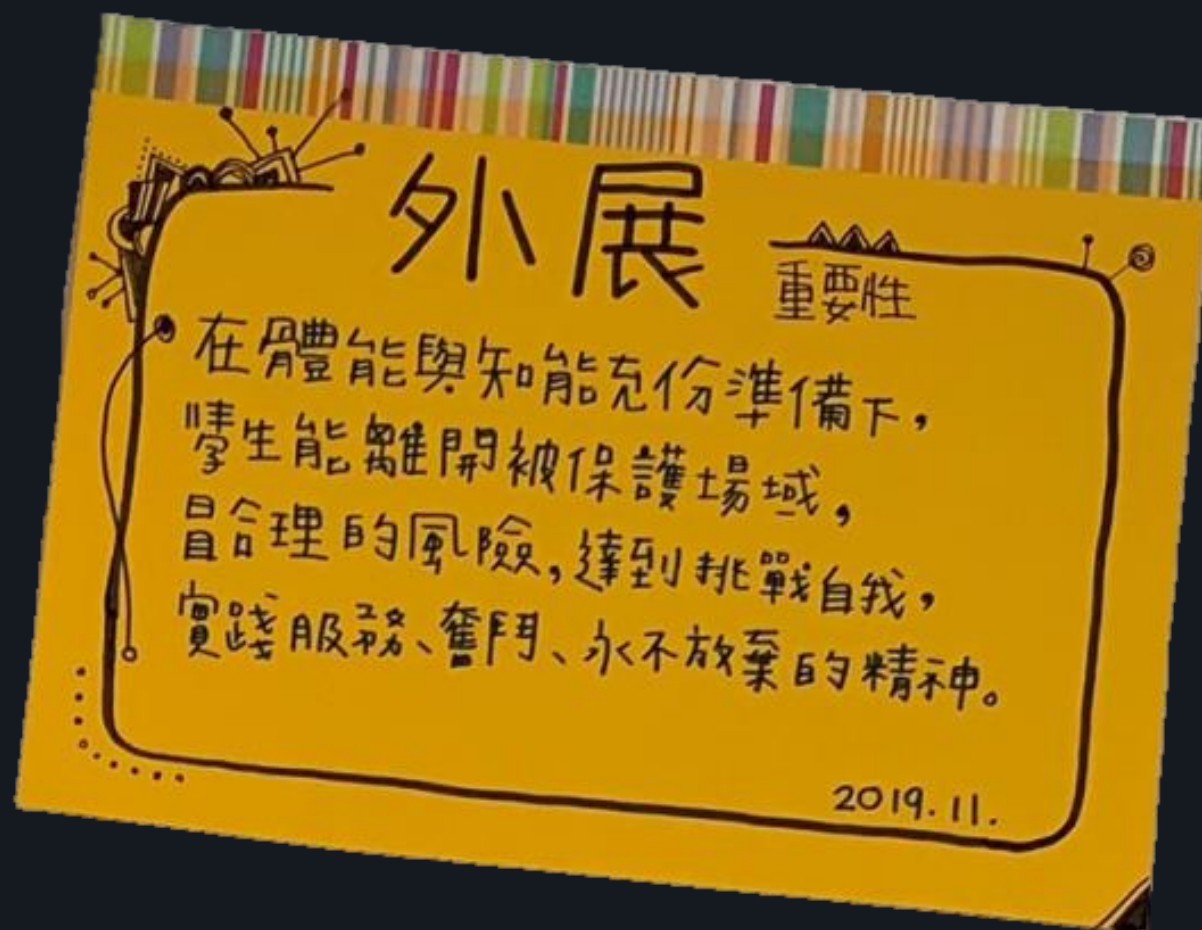 外展
重要性
在體能與知能充份準備下，
學生能離開被保護場域，
冒合理的風險，達到挑戰自我，
實踐服務、奮鬥、永不放棄的精神。
2019.11.